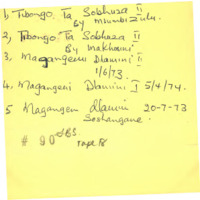 1, Tibongo Ta Sobhuza II
By Msumbi Zulu.
2, Tibongo Ta Sobhuza II
By Makhosini
3, Magangeni Dlamini II
1/6/73.
4, Magangeni Dlamini I 5/4/74.
5 Magangeni Dlamini 20-7-73
Soshangane
# 90 SBS.
Tape 18